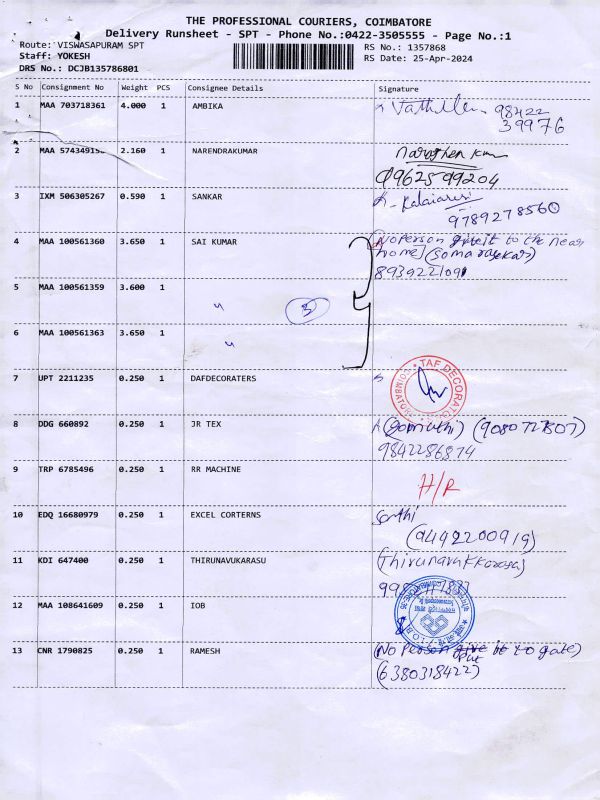 THE PROFESSIONAL COURIERS, COIMBATORE
Delivery Runsheet - SPT - Phone No.:0422-3505555 - Page No.:1
Route: VISWASAPURAM SPT
RS No.: 1357868
Staff: YOKESH
RS Date: 25-Apr-2024
DRS No.: DCJB135786801
S No Consignment No Weight PCS Consignee Details Signature
1 MAA 703718361 4.000 1 AMBIKA
98422
39976
2 MAA 5743491 2.160 1 NARENDRAKUMAR
9625 99204
3 IXM 506305267 0.590 1 SANKAR
K. Kalaiarasi
9789278560
4 MAA 100561360 3.650 1 SAI KUMAR (No person give it to the near
home) (Somarasekar)
8939221091
5 MAA 100561359 3.600 1 " 3
6 MAA 100561363 3.650 1 "
7 UPT 2211235 0.250 1 DAFDECORATERS
TAF DECORATOR
COIMBATORE
8 DDG 660892 0.250 1 JR TEX (Gomathi) (9080727807)
9842286874
9 TRP 6785496 0.250 1 RR MACHINE
H/R
10 EDQ 16680979 0.250 1 EXCEL CORTERNS
(94492200919)
11 KDI 647400 0.250 1 THIRUNAVUKARASU (Thirunavukkarasu)
12 MAA 108641609 0.250 1 IOB
13 CNR 1790825 0.250 1 RAMESH (No person give it to gate)
Put
(6380318422)